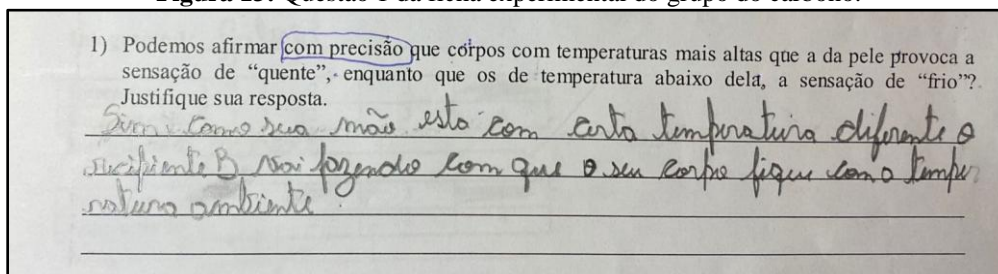 Figura 13: Questão 1 da ficha experimental do grupo do carbono.
1) Podemos afirmar com precisão que corpos com temperaturas mais altas que a da pele provoca a
sensação de “quente”, enquanto que os de temperatura abaixo dela, a sensação de “frio”?
Justifique sua resposta.
Sim como sua mão esta com certa temperatura diferente o
recipiente B vai fazendo com que o seu corpo fique com a tempe
ratura ambiente.